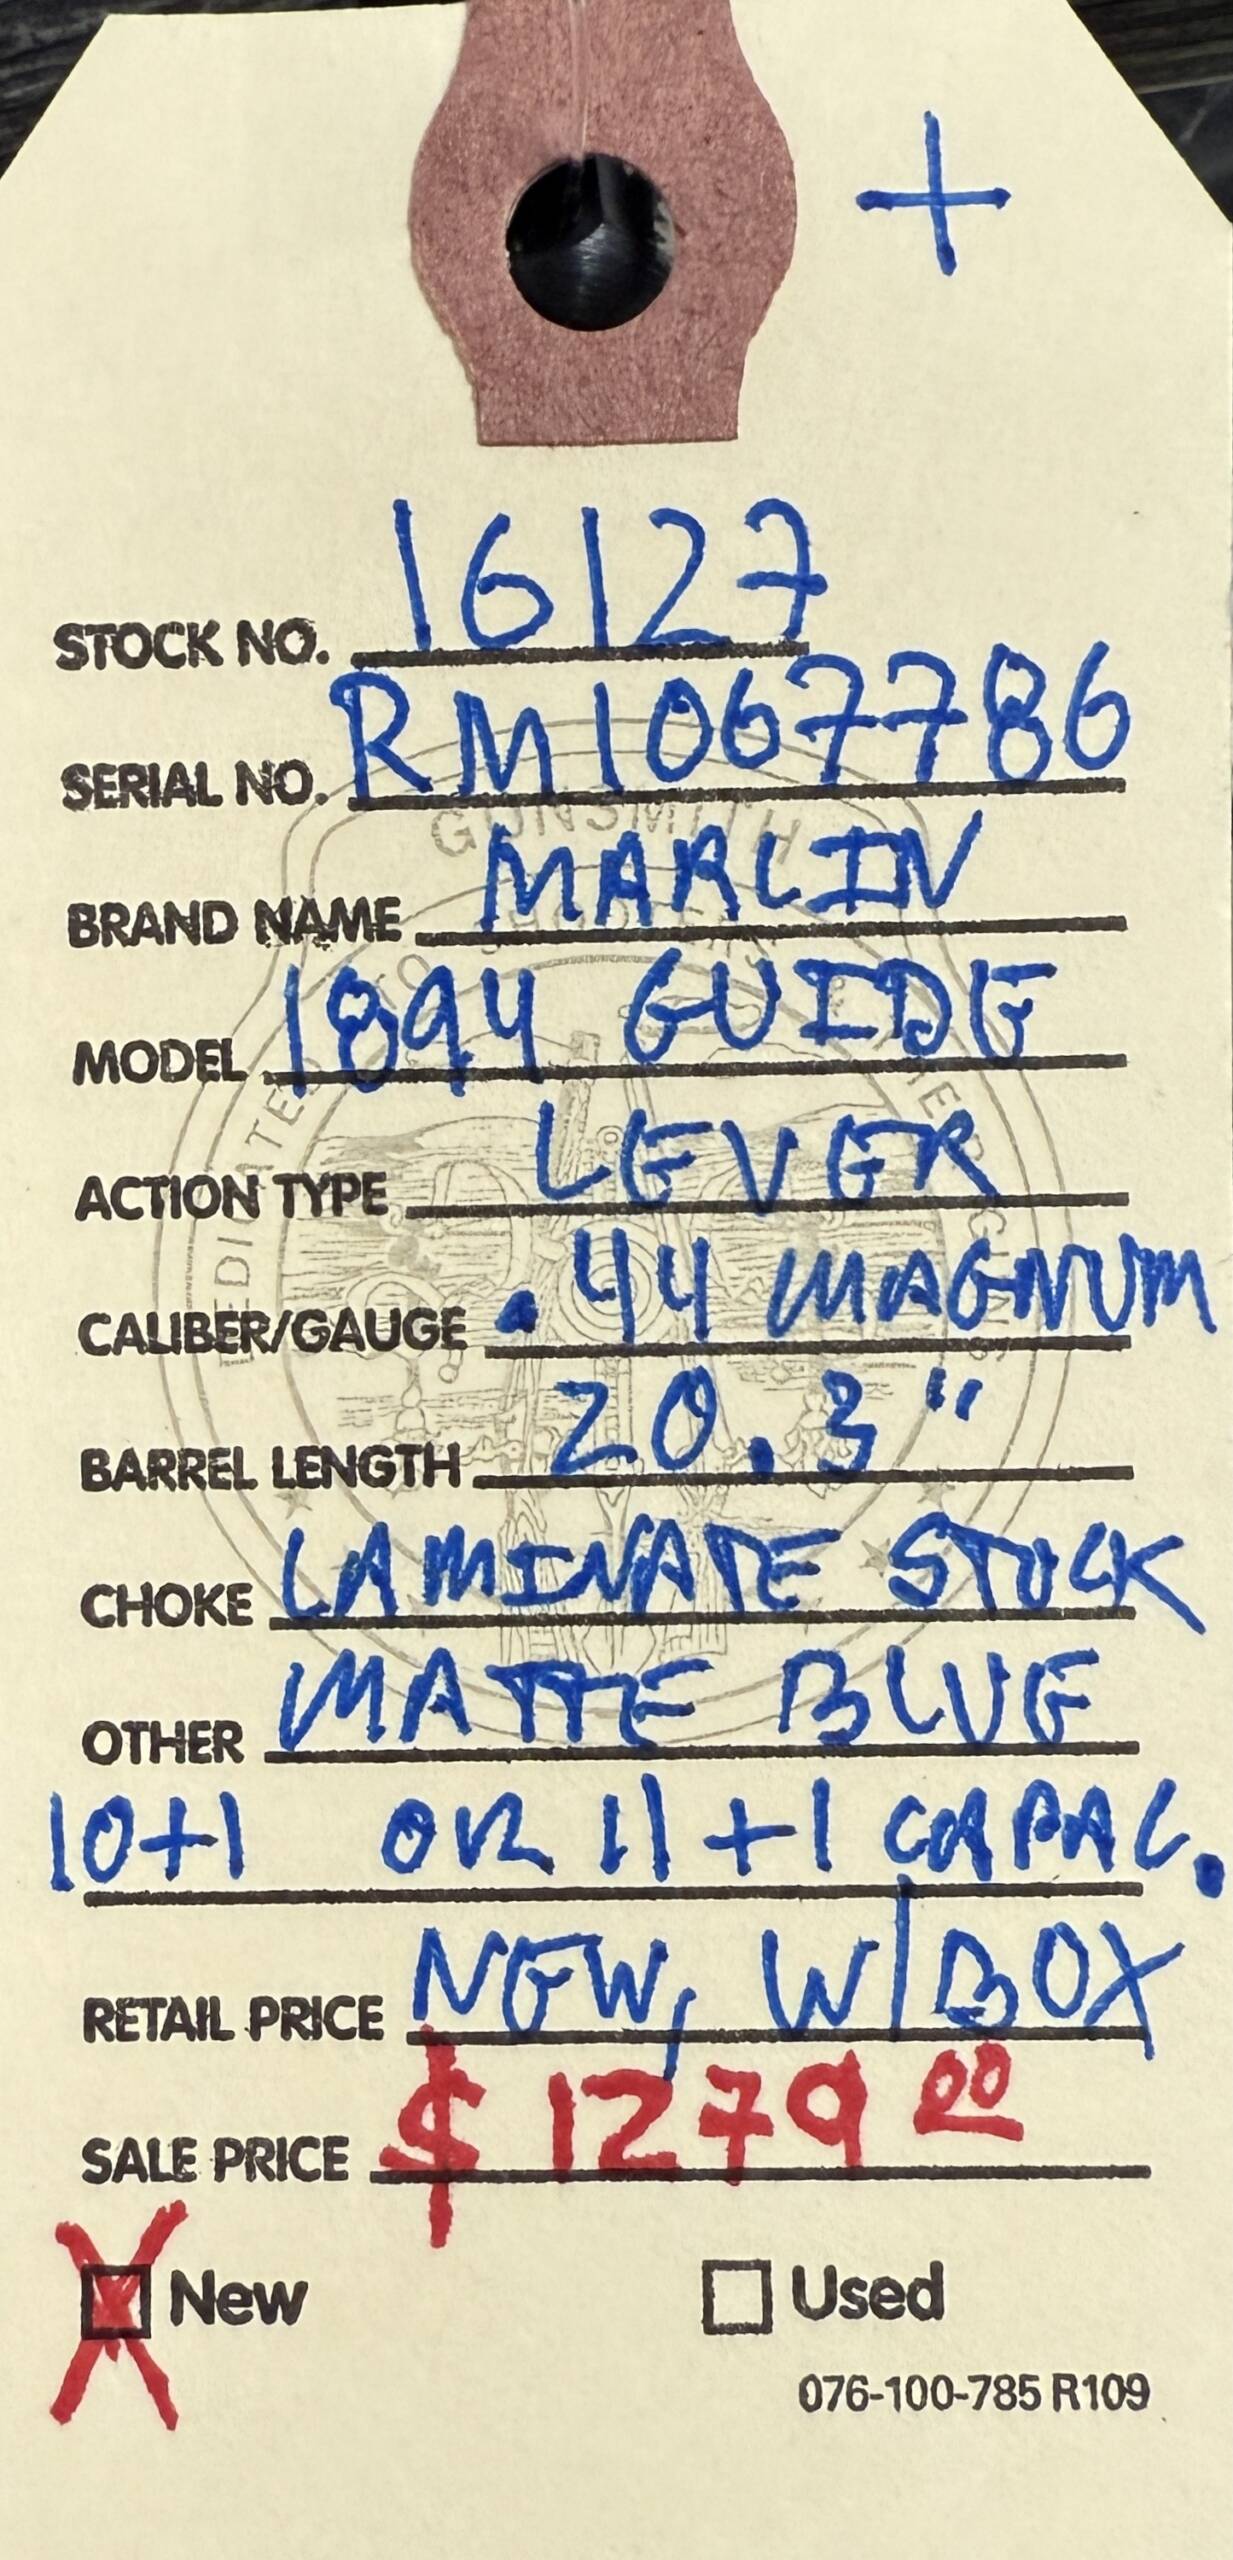 +
STOCK NO. 16127
SERIAL NO. RM1067786
GUNSMITH
BRAND NAME MARLIN
MODEL 1894 GUIDE
ACTION TYPE LEVER
CALIBER/GAUGE .44 MAGNUM
BARREL LENGTH 20.3"
CHOKE LAMINATE STOCK
OTHER MATTE BLUE
10+1 OR 11+1 CAPAC.
RETAIL PRICE NEW, W/BOX
SALE PRICE $1279 00
X New Used
076-100-785 R109